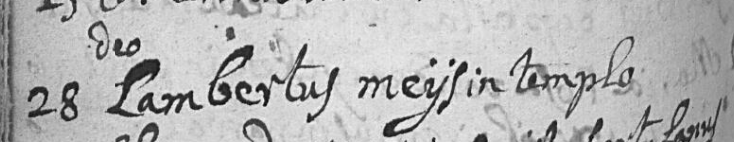 deo
28 Lambertus meÿs in templo